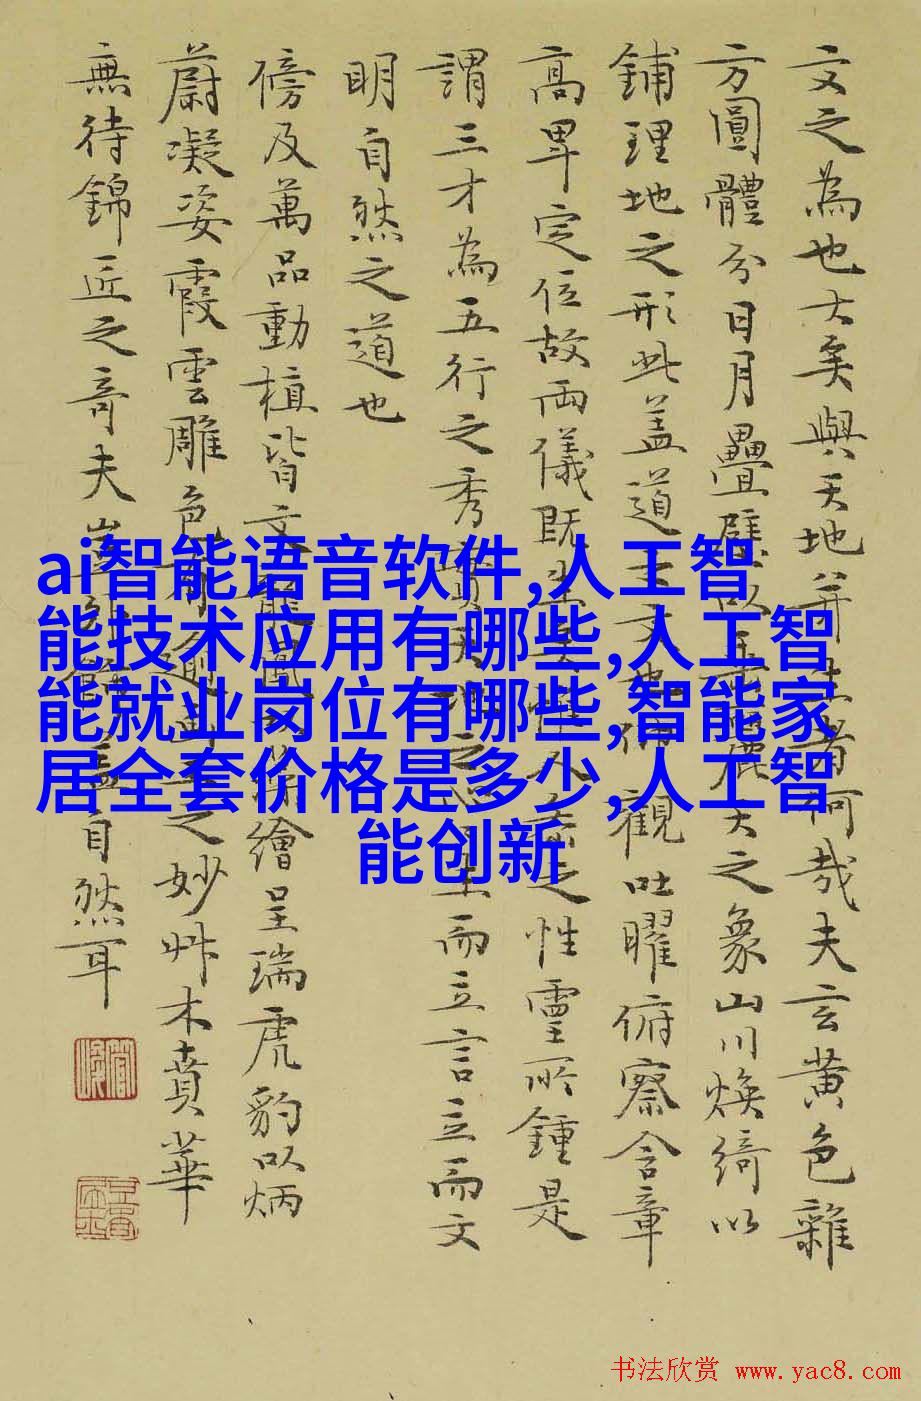 文之為也大矣與天地并生者何哉夫玄黃色雜
方圓體分日月疊璧以垂麗天之象山川煥綺以
鋪理地之形此盖道之文也仰觀吐曜俯察含章
高卑定位故兩儀既生矣惟人參之性靈所鍾是
謂三才為五行之秀實天地之心生而立言立而文
明自然之道也
傍及萬品動植皆文龍鳳以藻繪呈瑞虎豹以炳
蔚凝姿霞雲雕色有逾畫工之妙艸木賁華
無待錦匠之奇夫豈外飾盖自然耳
ai智能语音软件,人工智
能技术应用有哪些,人工智
能就业岗位有哪些,智能家
居全套价格是多少,人工智
能创新
书法欣赏 www.yac8.com